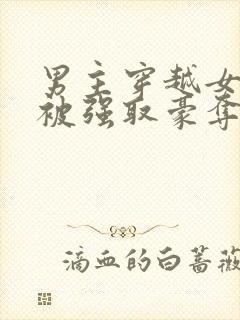 男主穿越女
被强取豪夺
滴血的白蔷薇